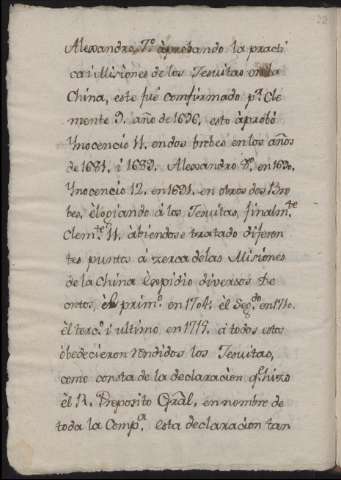 Alexandro 7.º aprobando la practi
ca i Misiones de los Jesuitas en la
China, este fue comfirmado p.r Cle
mente 9. año de 1696, esto aprobó
Ynocencio 11. en dos brebes en los años
de 1681. i 1689. Alexandro 8.º en 1690.
Ynocencio 12. en 1691. en otros dos Bre
bes, elogiando á los Jesuitas, finalm.te
Clem.te 11. abiendose tratado diferen
tes puntos á zerca de las Misiones
de la China Expidió diversos De
cretos, el prim.º en 1704. el Seg.do en 1710.
el terc.º i ultimo en 1715. á todos estos
obedecieron rendidos los Jesuitas,
como consta de la declaracion q.e hizo
el R. Preposito Gral. en nombre de
toda la Comp.a esta declaracion tan